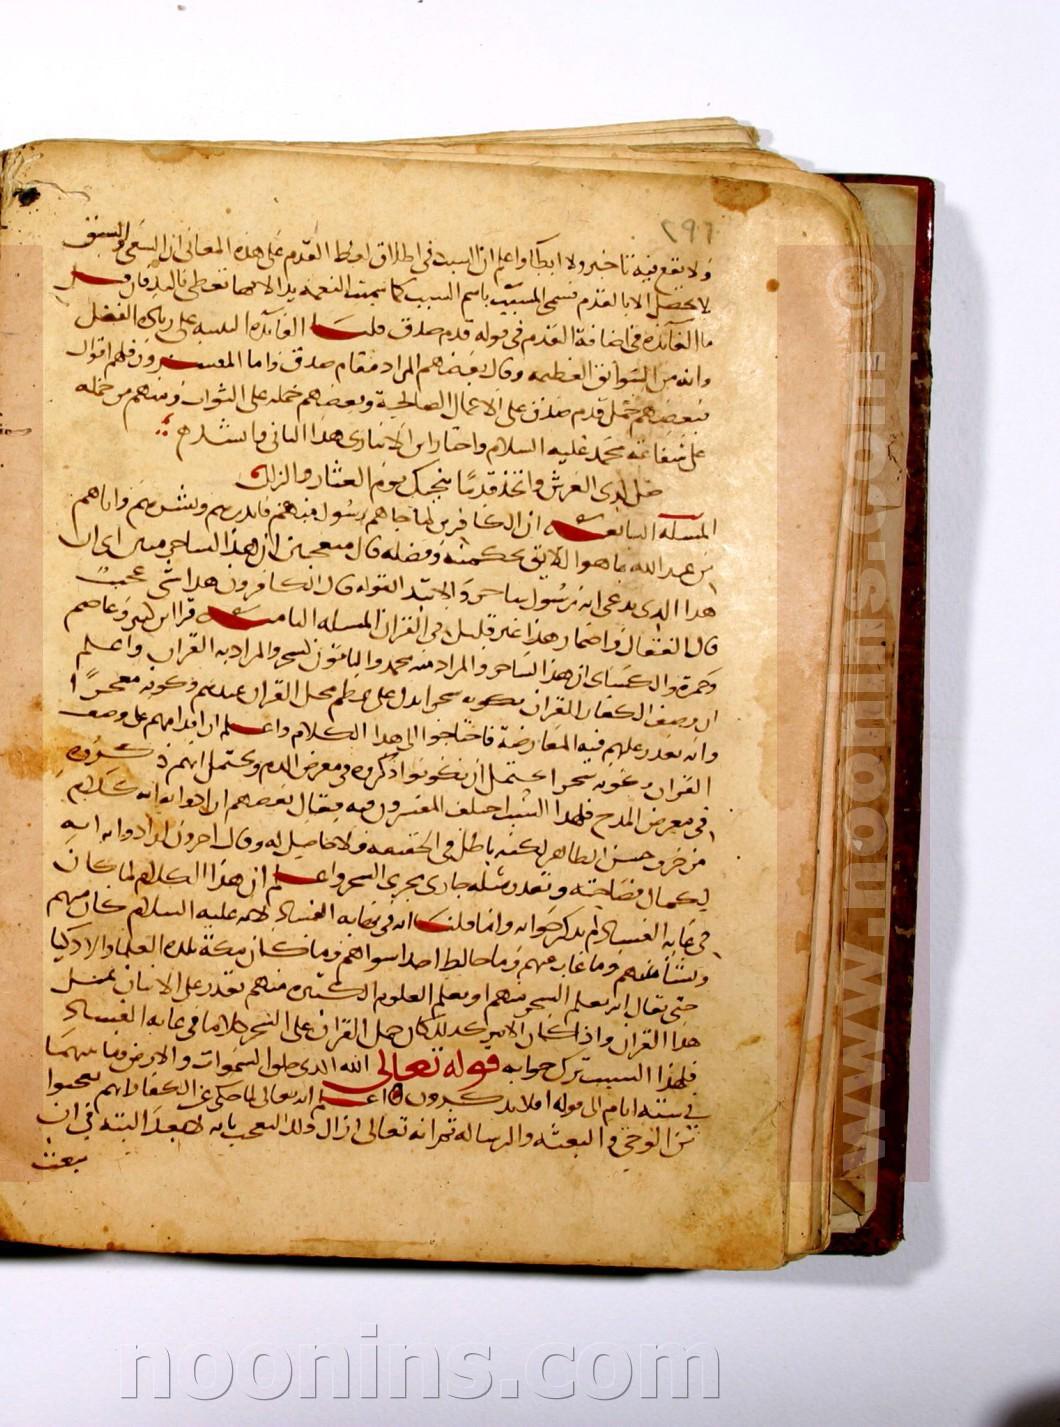 ٢٩٦
ولا يقع فيه تاخير ولا ابطآ واعلم ان السبب في اطلاق لفظ القدم على هذه المعاني ان السعي والسبق
لا يحصل الا بالقدم فسمي المسبب باسم السبب كما سميت النعمة يدا لانها تعطى باليد فان قيل
ما الفائدة في اضافة القدم في قوله قدم صدق قلنا الفائدة التنبيه على زيادة الفضل
وانه من السوابق العظيمه وقال بعضهم المراد مقام صدق واما المفسرون فلهم اقوال
فبعضهم حمل قدم صدق على الاعمال الصالحة وبعضهم حمله على الثواب ومنهم من حمله
على شفاعة محمد عليه السلام واختار ابن الانباري هذا الثاني وانشد
صل لذي العرش واتخذ قدما ينجيك يوم العثار والزلل
المسله الرابعه ان الكافرين لما جاهم رسول منهم فانذرهم وبشرهم واتاهم
من عند الله بما هو اللائق بحكمته وفضله قال متعجبين ان هذا لساحر مبين اي ان
هذا الذي يدعي انه رسول ساحر والابتدا بقوله قال الكافرون هذا شي عجيب
قال القفال واضمار هذا غير قليل في القران المسله الخامسه قرا ابن كثير وعاصم
وحمزة والكسائي ان هذا لساحر والمراد منه محمد والباقون لسحر والمراد به القران واعلم
ان وصف الكفار القران بكونه سحرا يدل على عظم محل القران عندهم وكونه معجزا
وانه تعذر عليهم فيه المعارضة فاحتاجوا الى هذا الكلام واعلم ان اقدامهم على وصف
القران بكونه سحرا يحتمل ان يكونوا ذكروه في معرض الذم ويحتمل انهم ذكروه
في معرض المدح فلهذا السبب اختلف المفسرون فيه فقال بعضهم ارادوا به انه كلام
مزخرف حسن الظاهر لكنه باطل في الحقيقه ولا حاصل له وقال اخرون ارادوا به انه
لكمال فصاحته وتعذر مثله جاري مجرى السحر واعلم ان هذا الكلام لما كان
في غاية الفساد لم يذكر جوابه وانما قلنا انه في غاية الفساد لانه عليه السلام كان منهم
ونشا بينهم وما غاب عنهم وما خالط احدا سواهم وما كان مكة بلدة العلما والاذكيا
حتى يقال انه تعلم السحر منهم او تعلم العلوم الكثيرة منهم فقدر على الاتيان بمثل
هذا القران واذا كان الامر كذلك كان حمل القران على السحر كلاما في غاية الفساد
فلهذا السبب ترك جوابه قوله تعالى الله الذي خلق السموات والارض وما بينهما
في ستة ايام الى قوله افلا تذكرون اعلم انه تعالى لما حكى عن الكفار انهم تعجبوا
من الوحي والبعثه والرساله ثم انه تعالى ازال ذلك التعجب بانه لا يبعد البتة في ان
يبعث
noonins.com
www.noonins.com ©